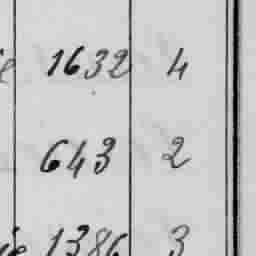 1632 4
643 2
1386 3